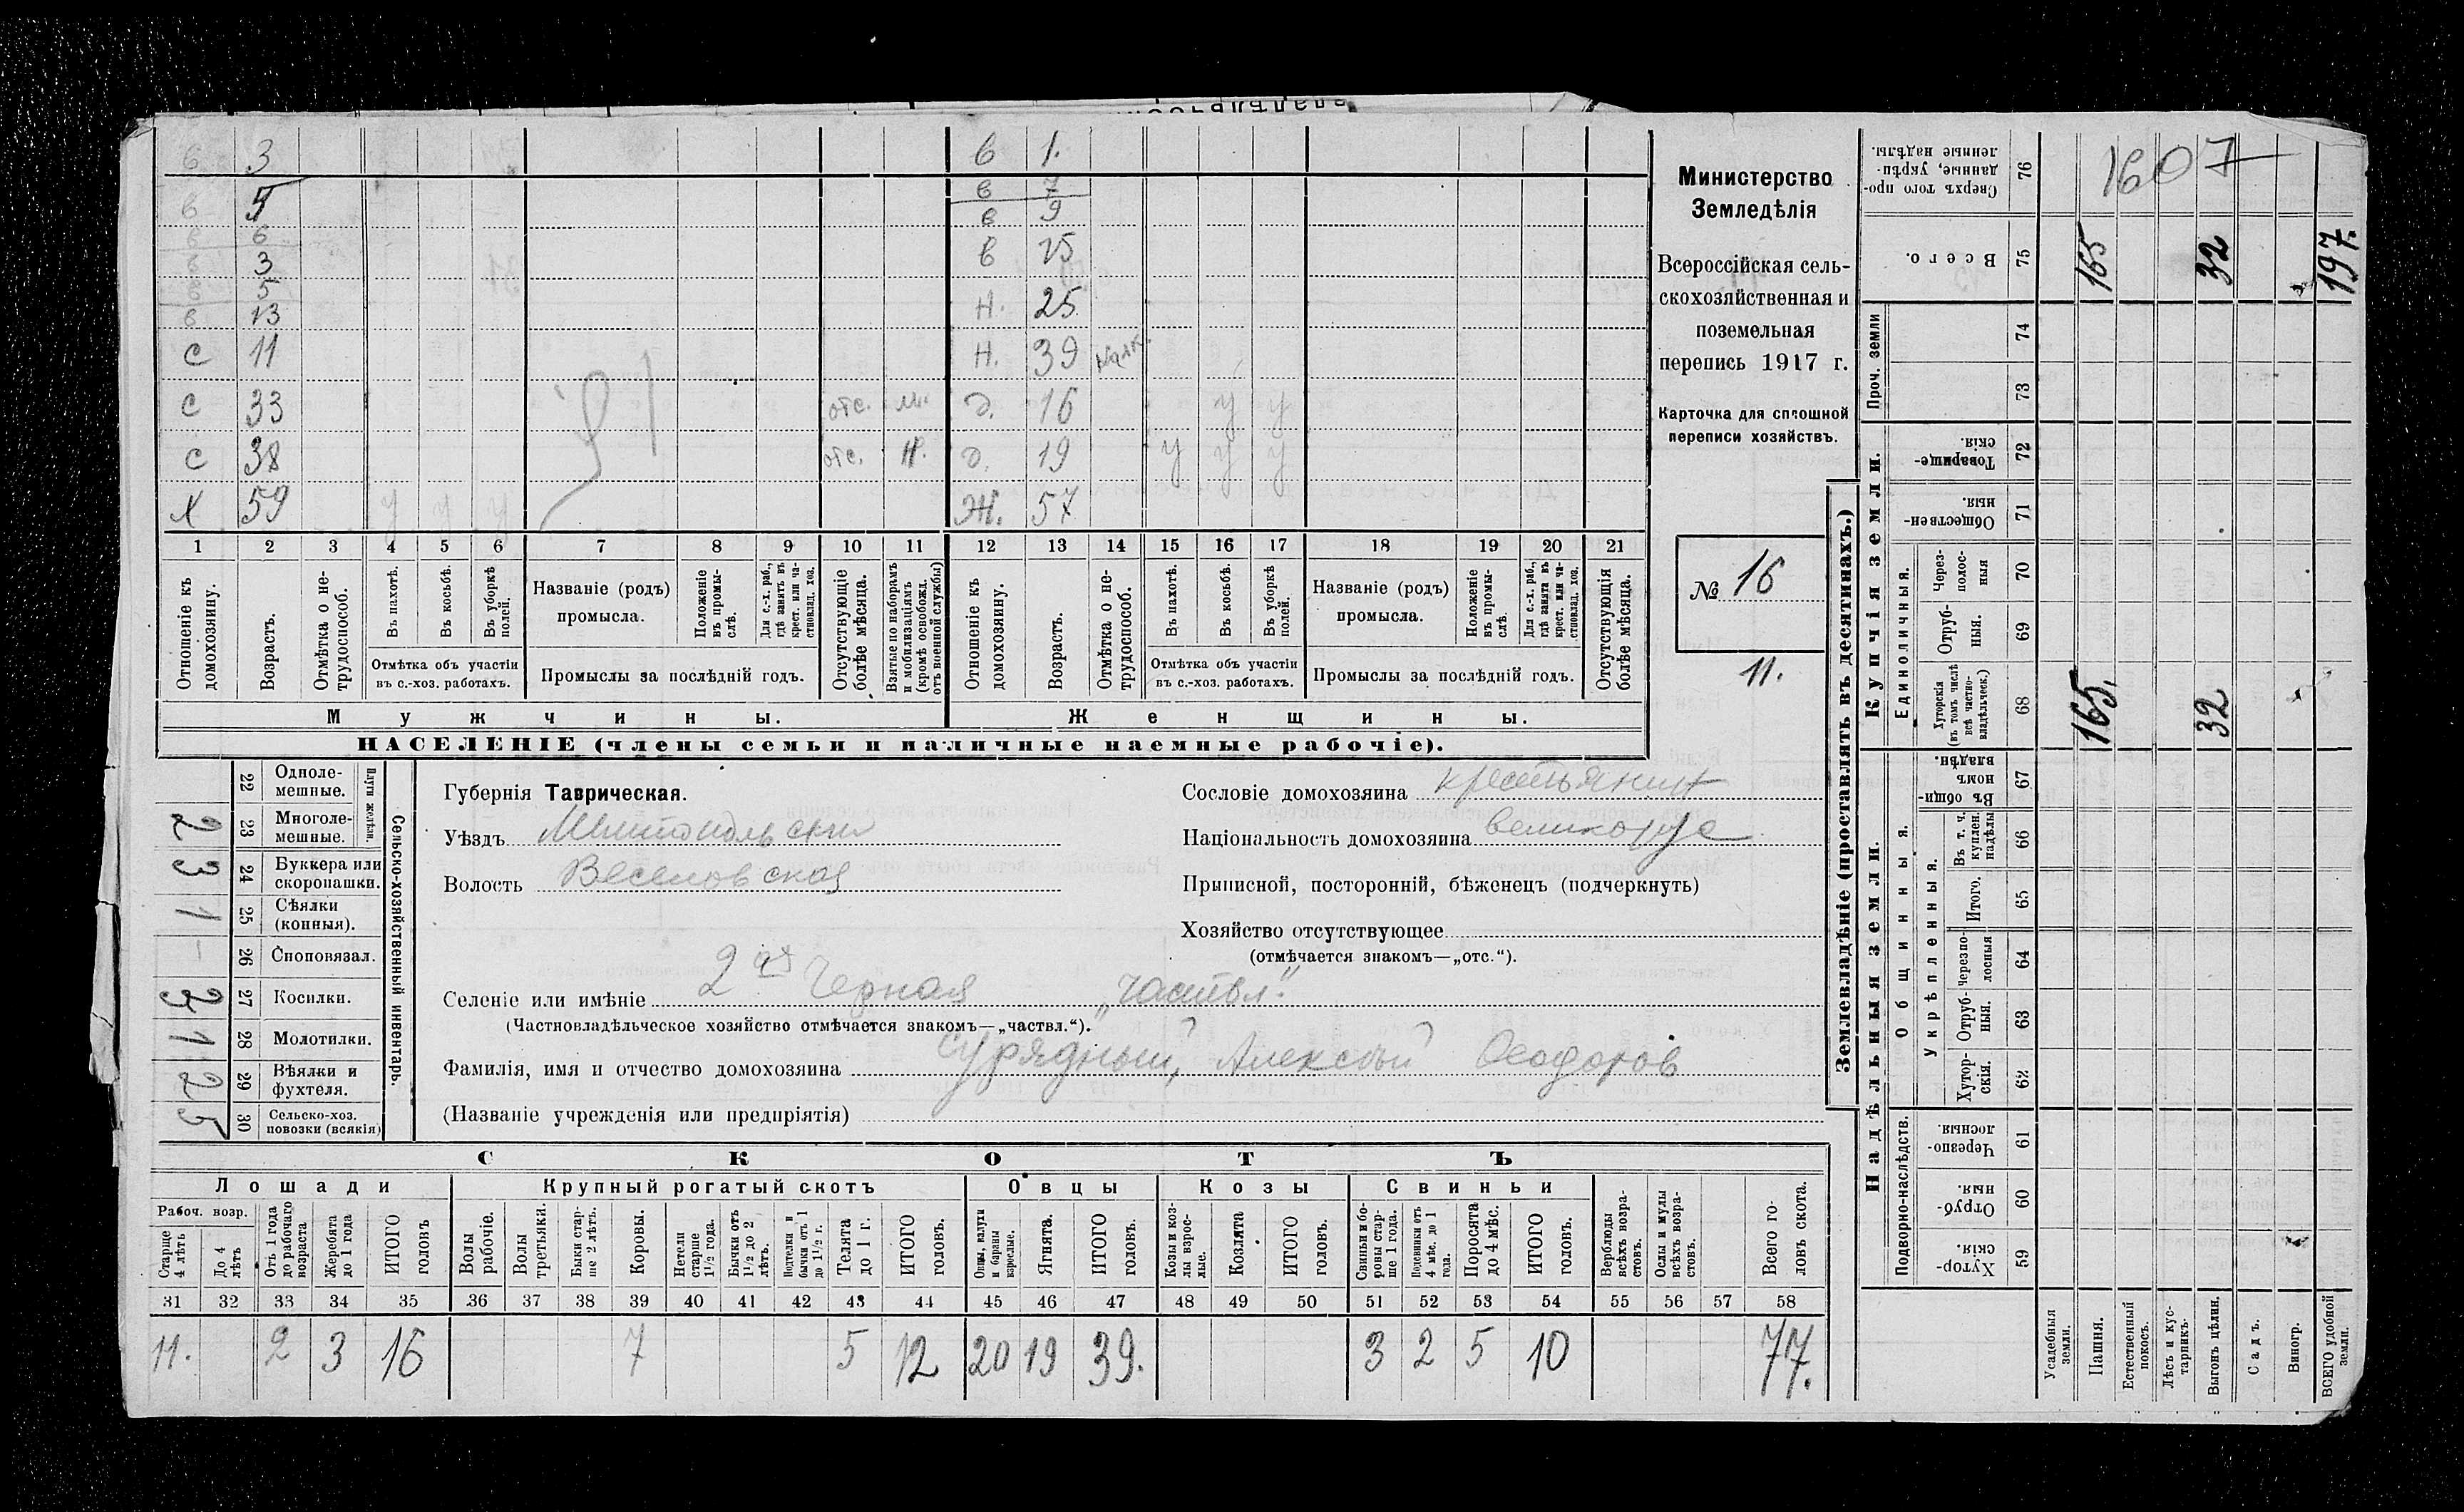 в 3 в 1.
в 5 в 7
в 6 в 9
в 3 в 25
в 5 н. 25
в 13 н. 39
с 11 д. 16 у у
с 33 отс. м. д. 19 у у у
с 38 отс. н. Ж. 57
х 59 у у у
1 2 3 4 5 6 7 8 9 10 11 12 13 14 15 16 17 18 19 20 21
Отношеніе къ домохозяину.
Возрастъ.
Отмѣтка о не-трудоспособ.
Въ пахотѣ.
Въ косьбѣ.
Въ уборкѣ полей.
Отмѣтка объ участіи въ с.-хоз. работахъ.
Названіе (родъ) промысла.
Положеніе въ промы-слѣ.
Для с.-х. раб., гдѣ занятъ въ крест. или ча-стновлад. хоз.
Промыслы за послѣдній годъ.
Отсутствующіе болѣе мѣсяца.
Взятые по наборамъ и мобилизаціямъ (кромѣ освобожд. отъ военной службы)
Отношеніе къ домохозяину.
Возрастъ.
Отмѣтка о не-трудоспособ.
Въ пахотѣ.
Въ косьбѣ.
Въ уборкѣ полей.
Отмѣтка объ участіи въ с.-хоз. работахъ.
Названіе (родъ) промысла.
Положеніе въ промы-слѣ.
Для с.-х. раб., гдѣ занятъ въ крест. или ча-стновлад. хоз.
Промыслы за послѣдній годъ.
Отсутствующія болѣе мѣсяца.
Мужчины.
Женщины.
НАСЕЛЕНІЕ (члены семьи и наличные наемные рабочіе).
Министерство
Земледѣлія
Всероссійская сель-
скохозяйственная и
поземельная
перепись 1917 г.
Карточка для сплошной
переписи хозяйствъ.
№ 16
11.
Сельско-хозяйственный инвентарь.
Плуги желѣзн.
22 Одноле-мешные.
2 23 Многоле-мешные.
3 24 Буккера или скоропашки.
1 25 Сѣялки (конныя).
– 26 Сноповязал.
3 27 Косилки.
1 28 Молотилки.
2 29 Вѣялки и фухтеля.
5 30 Сельско-хоз. повозки (всякія)
Губернія Таврическая.
Уѣздъ Мелитопольскій
Волость Веселовская
Сословіе домохозяина крестьянин
Національность домохозяина великорус
Приписной, посторонній, бѣженецъ (подчеркнуть)
Хозяйство отсутствующее
(отмѣчается знакомъ—„отс.“).
Селеніе или имѣніе 2ая Черная „частвл.“
(Частновладѣльческое хозяйство отмѣчается знакомъ—„частвл.“).
Фамилія, имя и отчество домохозяина Сурядный, Алексѣй Феодоров
(Названіе учрежденія или предпріятія)
СКОТЪ
Лошади
Крупный рогатый скотъ
Овцы
Козы
Свиньи
Рабоч. возр.
Старше 4 лѣтъ
До 4 лѣтъ
Отъ 1 года до рабочаго возраста
Жеребята до 1 года
ИТОГО головъ
Волы рабочіе.
Волы третьяки.
Быки стар-ше 2 лѣтъ.
Коровы.
Нетели старше 1 1/2 года.
Бычки отъ 1 1/2 до 2 лѣтъ.
Подтелки и бычки отъ 1 до 1 1/2 г.
Телята до 1 г.
ИТОГО головъ.
Овцы, валухи и бараны взрослые.
Ягнята.
ИТОГО головъ.
Козы и коз-лы взрос-лые.
Козлята
ИТОГО головъ.
Свиньи и бо-ровы стар-ше 1 года.
Подсвинки отъ 4 мѣс. до 1 года.
Поросята до 4 мѣс.
ИТОГО головъ.
Верблюды всѣхъ возра-стовъ.
Ослы и мулы всѣхъ возра-стовъ.
Всего го-ловъ скота.
31 32 33 34 35 36 37 38 39 40 41 42 43 44 45 46 47 48 49 50 51 52 53 54 55 56 57 58
11. 2 3 16 7 5 12 20 19 39. 3 2 5 10 77.
Землевладѣніе (проставлять въ десятинахъ.)
1607
Сверхъ того про-данные, укрѣп-ленные надѣлы. 76
Всего. 75 165 32 197.
Проч. земли
74
73
Купчія земли.
Товарище-скія. 72
Обществен-ныя. 71
Единоличныя.
Через-полос-ныя 70
Отруб-ныя. 69
Хуторскія (въ томъ числѣ всѣ частно-владѣльческ.) 68 165. 32
Надѣльныя земли.
Общинныя.
Въ общин-номъ владѣн. 67
Укрѣпленныя.
Въ т. ч. куплен. надѣлы 66
Итого. 65
Черезпо-лосныя 64
Отруб-ныя. 63
Хутор-скія. 62
Подворно-наслѣдств.
Черезпо-лосныя 61
Отруб-ныя. 60
Хутор-скія. 59
Усадебныя земли.
Пашня.
Естественный покосъ.
Лѣсъ и кус-тарникъ.
Выгонъ цѣлин.
Садъ.
Виногр.
ВСЕГО удобной земли.